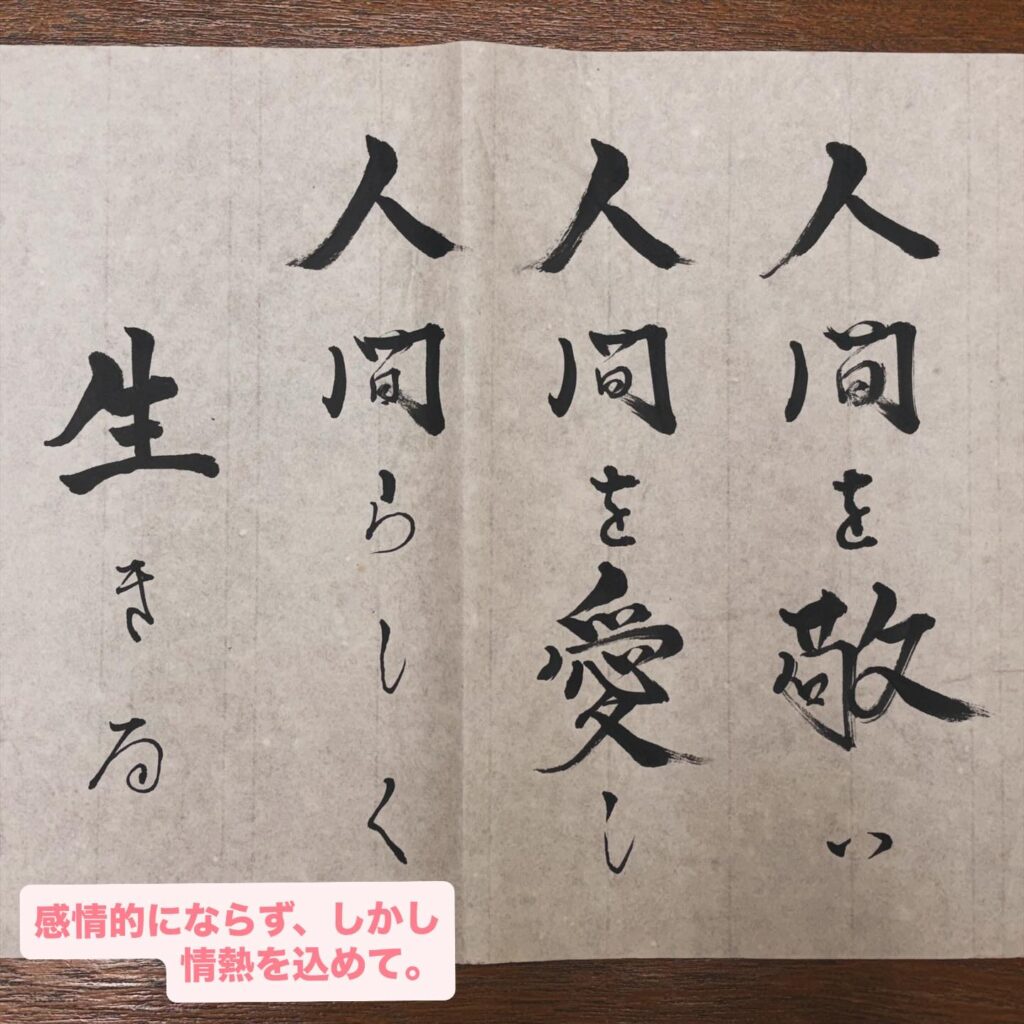 人間を敬い
人間を愛し
人間らしく
生きる
感情的にならず、しかし
情熱を込めて。